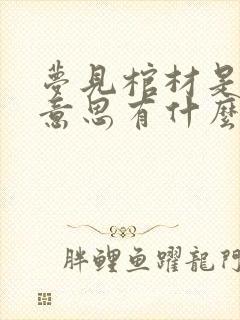 夢見棺材是
意思有什麼
胖鯉魚躍龍門